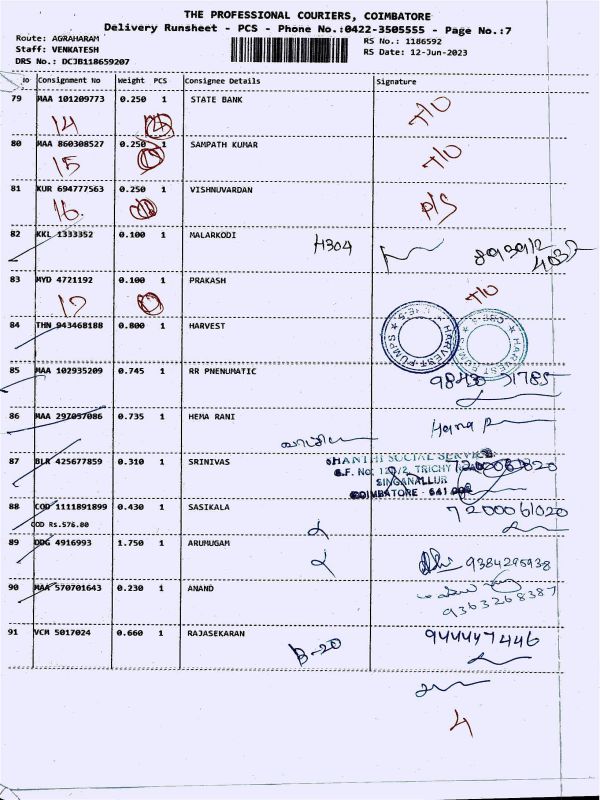 THE PROFESSIONAL COURIERS, COIMBATORE
Delivery Runsheet - PCS - Phone No.:0422-3505555 - Page No.:7
Route: AGRAHARAM
Staff: VENKATESH
DRS No.: DCJB118659207
RS No.: 1186592
RS Date: 12-Jun-2023
No Consignment No Weight PCS Consignee Details Signature
79 MAA 101209773 0.250 1 STATE BANK
14
80 MAA 860308527 0.250 1 SAMPATH KUMAR
15
81 KUR 694777563 0.250 1 VISHNUVARDAN P/S
16.
82 KKL 1333352 0.100 1 MALARKODI H304
83 MYD 4721192 0.100 1 PRAKASH
84 THN 943468188 0.800 1 HARVEST
HARVEST PUMPS
85 MAA 102935209 0.745 1 RR PNENUMATIC
86 MAA 297057086 0.735 1 HEMA RANI
87 BLR 425677859 0.310 1 SRINIVAS
SHANTHI SOCIAL SERVICES
TRICHY ROAD
SINGANALLUR
COIMBATORE
88 COD 1111891899 0.430 1 SASIKALA 7200061020
COD Rs.576.00
89 ODG 4916993 1.750 1 ARUMUGAM 9384295938
90 MAA 570701643 0.230 1 ANAND
9363268387
91 VCM 5017024 0.660 1 RAJASEKARAN B-20 9444447446
4